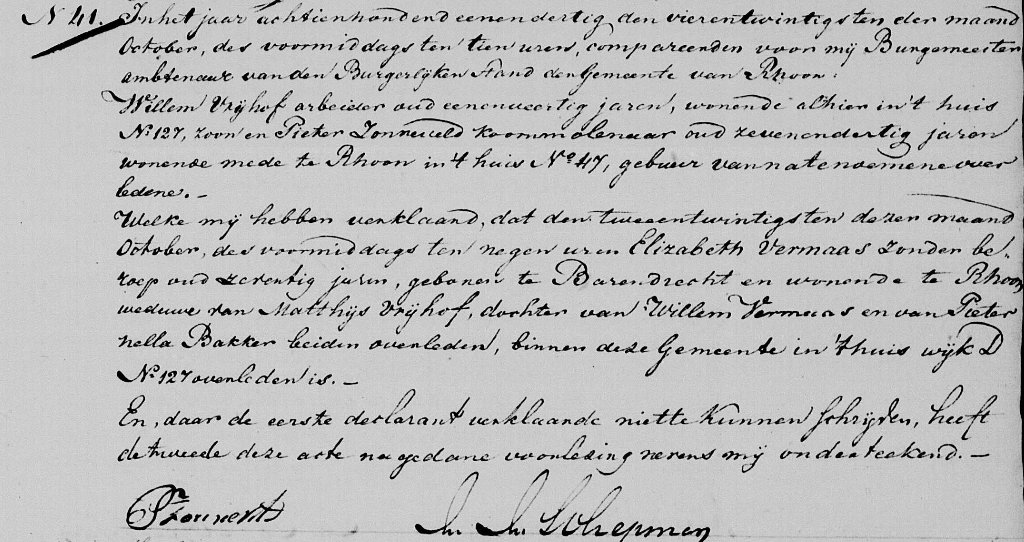 N 41. In het jaar achtienhonderd eenendertig den vierentwintigsten der maand
October, des voormiddags ten tien uren, compareerden voor mij Burgemeester
ambtenaar van den Burgerlijken Stand der Gemeente van Rhoon.
Willem Vrijhof arbeider oud eenenveertig jaren, wonende alhier in 't huis
No 127, zoon en Pieter Zonneveld koornmolenaar oud zevenendertig jaren
wonende mede te Rhoon in 't huis No 47, gebuur van natenoemene over
ledene. -
Welke mij hebben verklaard, dat den tweeentwintigsten dezer maand
October, des voormiddags ten negen uren Elizabeth Vermaas zonder be-
roep oud zeventig jaren, geboren te Barendrecht en wonende te Rhoon
weduwe van Matthijs Vrijhof, dochter van Willem Vermaas en van Pieter
nella Bakker beiden overleden, binnen deze Gemeente in 't huis wijk D
No 127 overleden is. -
En, daar de eerste declarant verklaarde niet te kunnen schrijven, heeft
de tweede deze acte na gedane voorlezing nevens mij onderteekend. -
Schepman